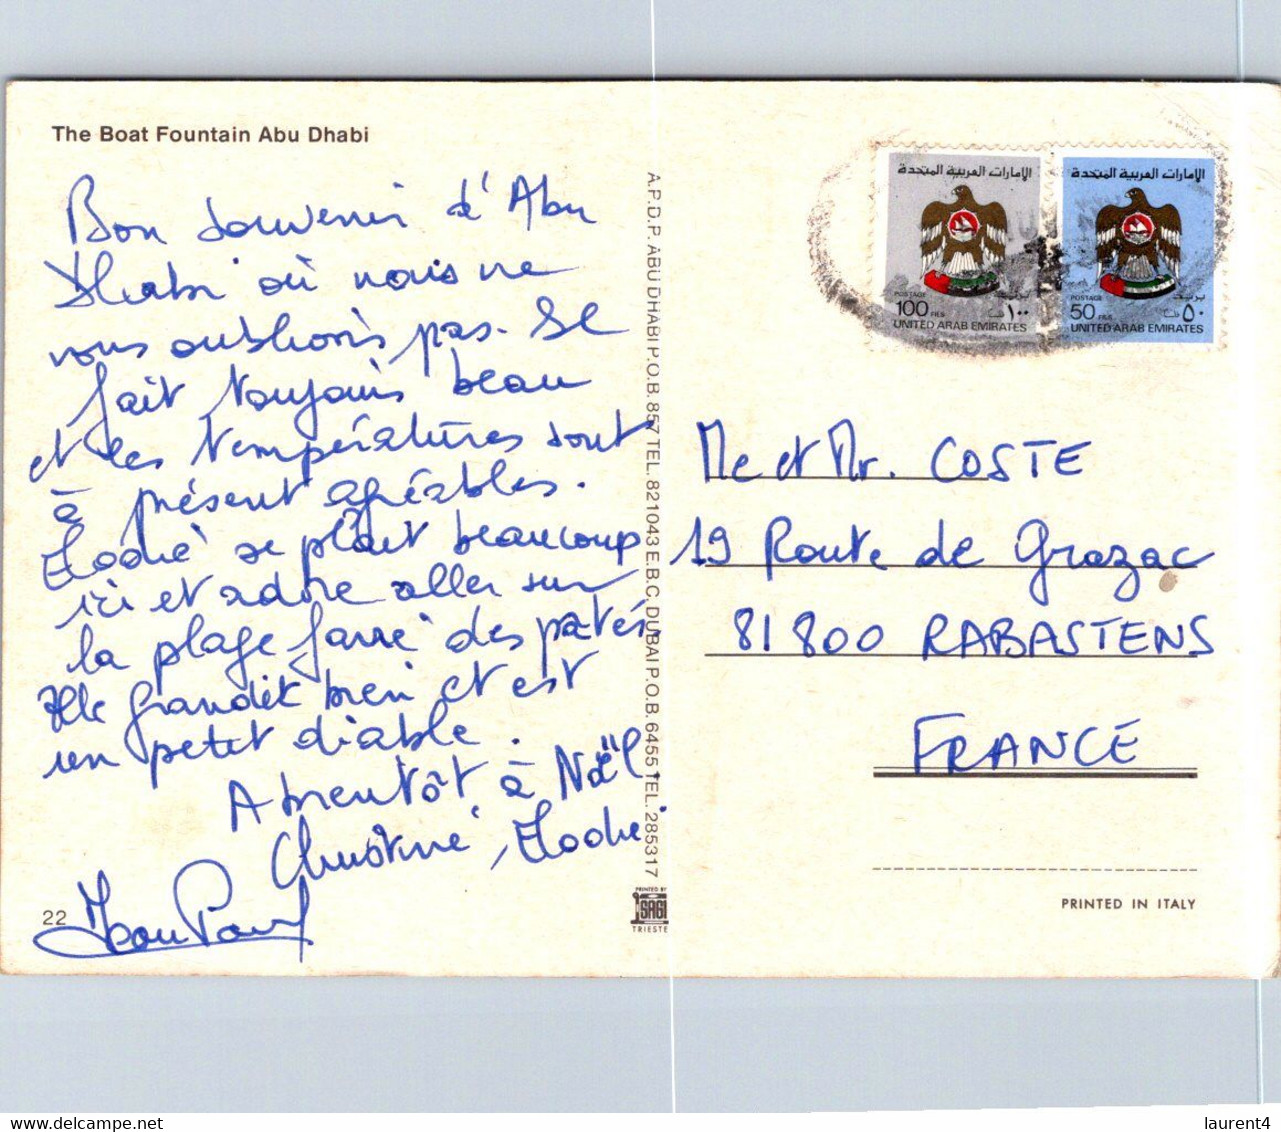 The Boat Fountain Abu Dhabi
Bon souvenir d'Abu
Dhabi où nous ne
vous oublions pas. Il
fait toujours beau
et les températures sont
à présent agréables.
Elodie se plaît beaucoup
ici et adore aller sur
la plage faire des patés.
Elle grandit bien et est
un petit diable.
A bientôt à Noël.
Christine, Elodie
Jean Paul
22
A.P.D.P. ABU DHABI P.O.B. 857 TEL. 821043 E.B.C. DUBAI P.O.B. 6455 TEL. 285317
PRINTED BY
SAGI
TRIESTE
الإمارات العربية المتحدة
POSTAGE بريد
100 FILS ١٠٠ فلس
UNITED ARAB EMIRATES
الإمارات العربية المتحدة
POSTAGE بريد
50 FILS ٥٠ فلس
UNITED ARAB EMIRATES
Me et Mr. COSTE
19 Route de Grazac
81800 RABASTENS
FRANCE
PRINTED IN ITALY
laurent4